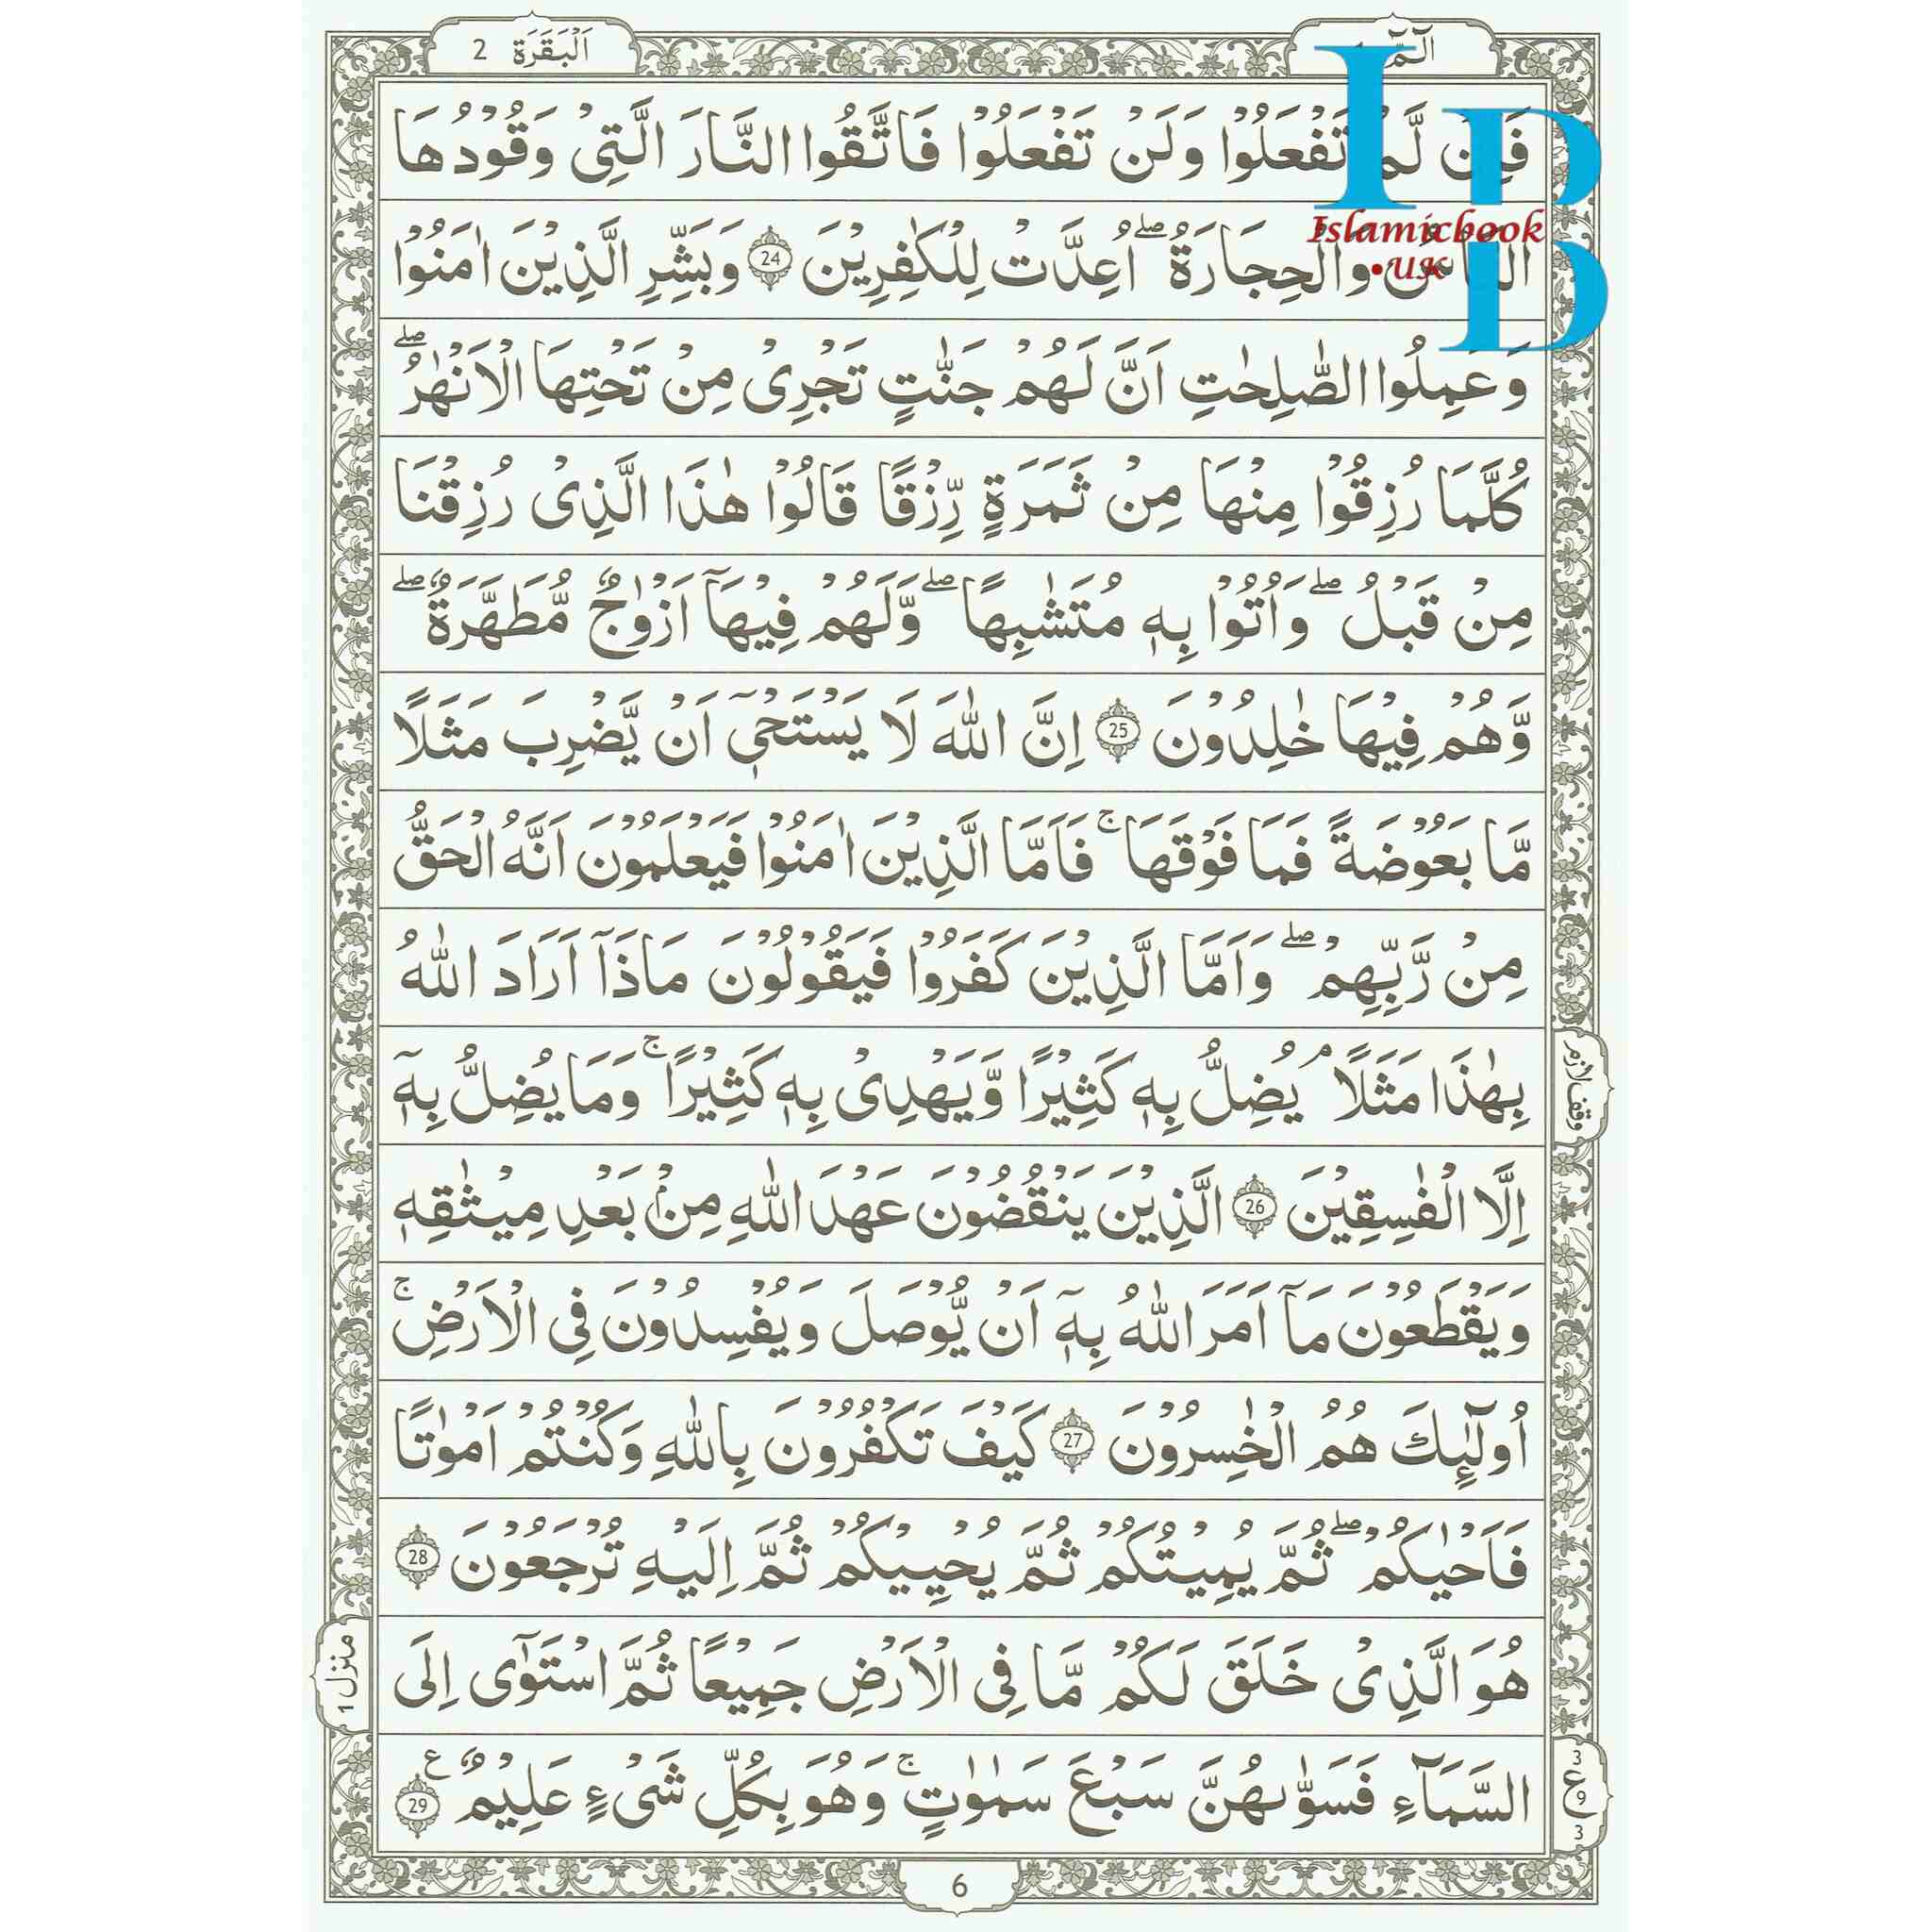 اَلْبَقَرَة 2
الٓمّٓ
فَاِنْ لَّمْ تَفْعَلُوْا وَلَنْ تَفْعَلُوْا فَاتَّقُوا النَّارَ الَّتِیْ وَقُوْدُهَا
النَّاسُ وَالْحِجَارَةُ ۖ اُعِدَّتْ لِلْكٰفِرِیْنَ 24 وَبَشِّرِ الَّذِیْنَ اٰمَنُوْا
وَعَمِلُوا الصّٰلِحٰتِ اَنَّ لَهُمْ جَنّٰتٍ تَجْرِیْ مِنْ تَحْتِهَا الْاَنْهٰرُ ۖ
كُلَّمَا رُزِقُوْا مِنْهَا مِنْ ثَمَرَةٍ رِّزْقًا قَالُوْا هٰذَا الَّذِیْ رُزِقْنَا
مِنْ قَبْلُ ۖ وَاُتُوْا بِهٖ مُتَشٰبِهًا ۖ وَّلَهُمْ فِیْهَاۤ اَزْوٰجٌ مُّطَهَّرَةٌ ۖ
وَّهُمْ فِیْهَا خٰلِدُوْنَ 25 اِنَّ اللّٰهَ لَا یَسْتَحْیٖۤ اَنْ یَّضْرِبَ مَثَلًا
مَّا بَعُوْضَةً فَمَا فَوْقَهَا ۚ فَاَمَّا الَّذِیْنَ اٰمَنُوْا فَیَعْلَمُوْنَ اَنَّهُ الْحَقُّ
مِنْ رَّبِّهِمْ ۖ وَاَمَّا الَّذِیْنَ كَفَرُوْا فَیَقُوْلُوْنَ مَاذَاۤ اَرَادَ اللّٰهُ
بِهٰذَا مَثَلًا ۘ یُضِلُّ بِهٖ كَثِیْرًا وَّیَهْدِیْ بِهٖ كَثِیْرًا ۚ وَمَا یُضِلُّ بِهٖۤ
اِلَّا الْفٰسِقِیْنَ 26 الَّذِیْنَ یَنْقُضُوْنَ عَهْدَ اللّٰهِ مِنْۢ بَعْدِ مِیْثٰقِهٖ
وَیَقْطَعُوْنَ مَاۤ اَمَرَ اللّٰهُ بِهٖۤ اَنْ یُّوْصَلَ وَیُفْسِدُوْنَ فِی الْاَرْضِ ۚ
اُولٰٓئِكَ هُمُ الْخٰسِرُوْنَ 27 كَیْفَ تَكْفُرُوْنَ بِاللّٰهِ وَكُنْتُمْ اَمْوٰتًا
فَاَحْیٰكُمْ ۖ ثُمَّ یُمِیْتُكُمْ ثُمَّ یُحْیِیْكُمْ ثُمَّ اِلَیْهِ تُرْجَعُوْنَ 28
هُوَ الَّذِیْ خَلَقَ لَكُمْ مَّا فِی الْاَرْضِ جَمِیْعًا ثُمَّ اسْتَوٰۤی اِلَی
السَّمَآءِ فَسَوّٰىهُنَّ سَبْعَ سَمٰوٰتٍ ۚ وَهُوَ بِكُلِّ شَیْءٍ عَلِیْمٌ ع 29
وقف لازم
منزل 1
3
ع
9
3
6
IBD
Islamicbook
.UK